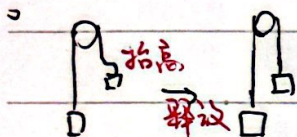 抬高
释放